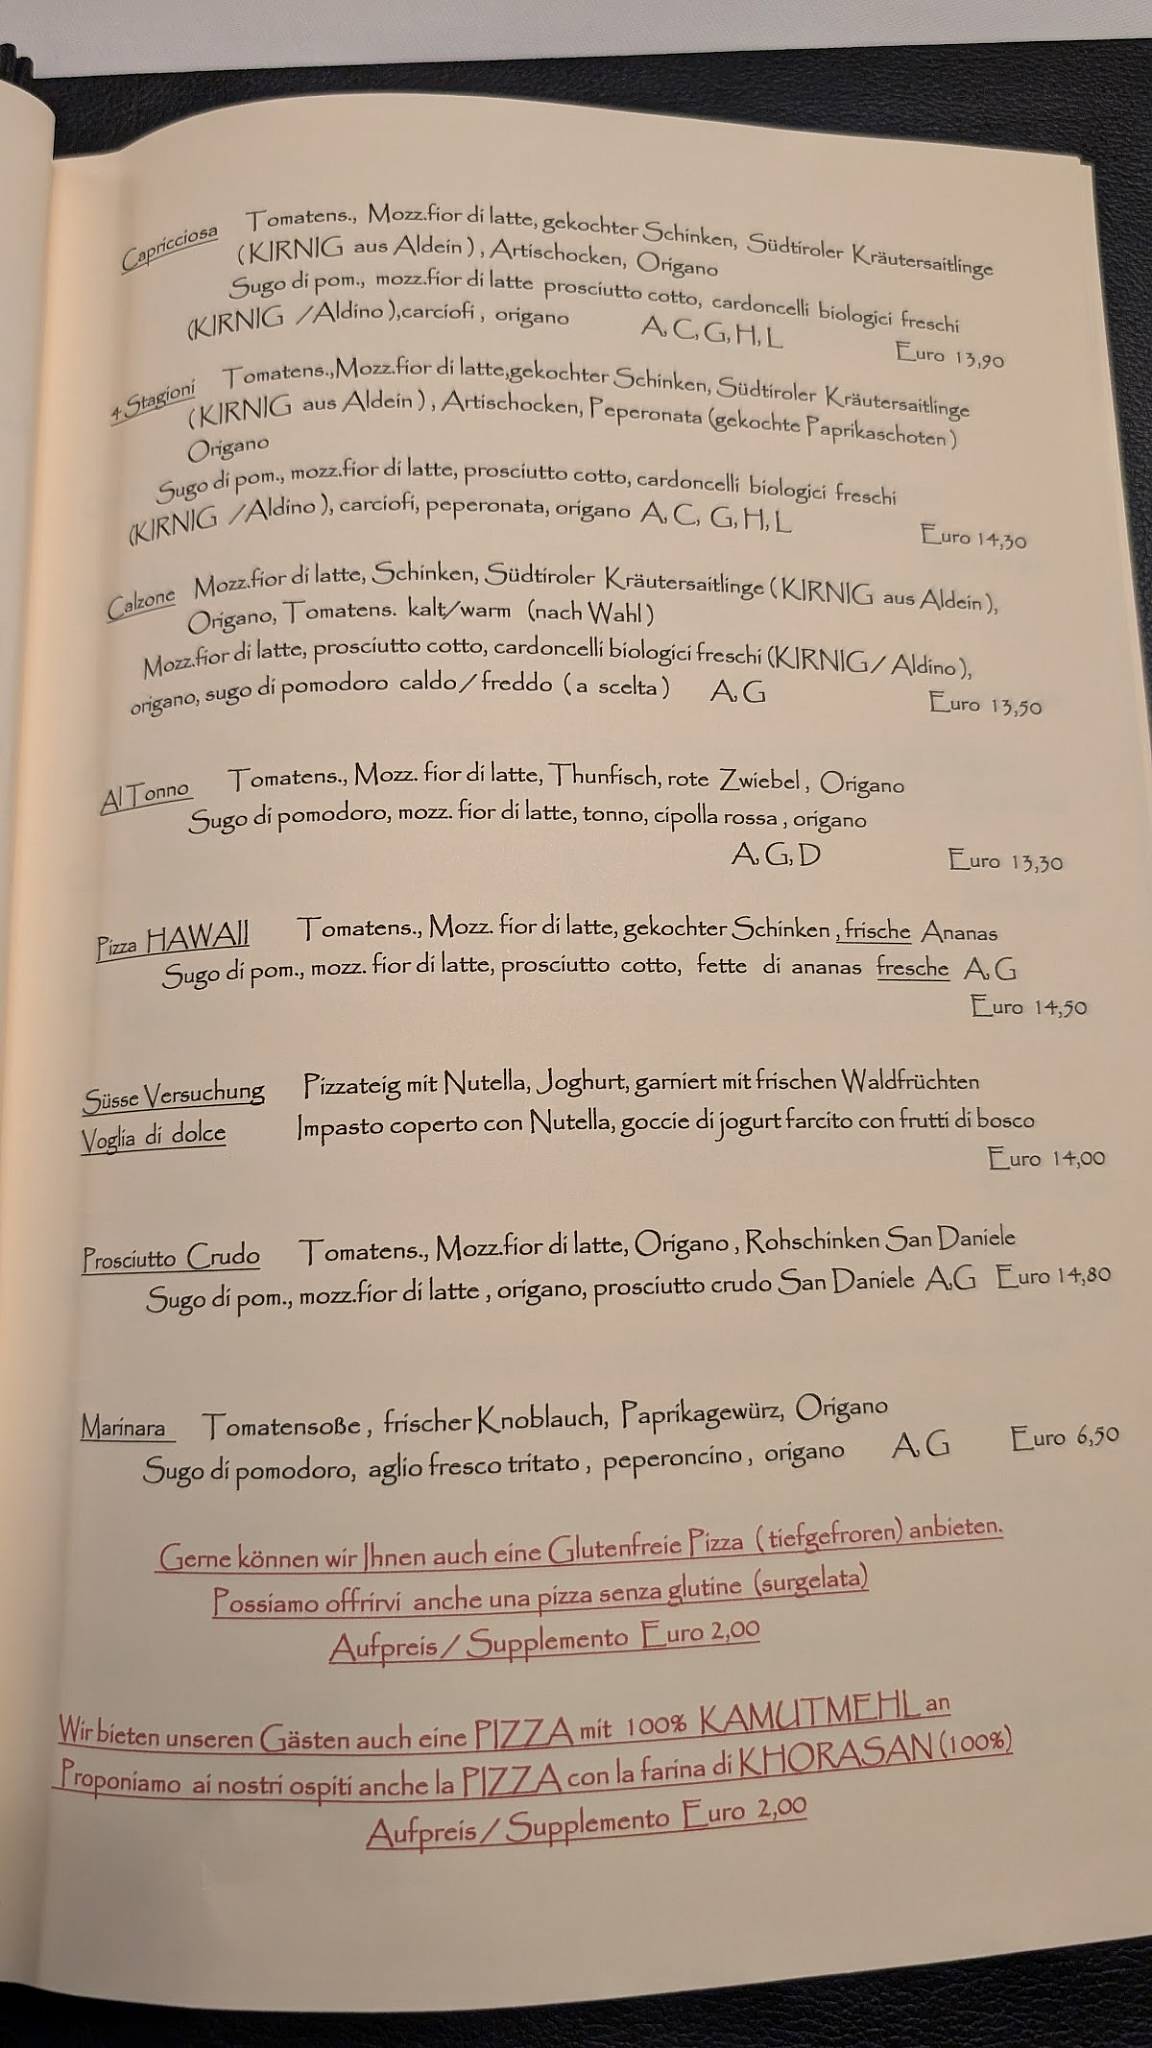 Capricciosa Tomatens., Mozz.fior di latte, gekochter Schinken, Südtiroler Kräutersaitlinge
(KIRNIG aus Aldein), Artischocken, Origano
Sugo di pom., mozz.fior di latte prosciutto cotto, cardoncelli biologici freschi
(KIRNIG /Aldino),carciofi, origano A, C, G, H, L
Euro 13,90
4 Stagioni Tomatens.,Mozz.fior di latte,gekochter Schinken, Südtiroler Kräutersaitlinge
(KIRNIG aus Aldein), Artischocken, Peperonata (gekochte Paprikaschoten)
Origano
Sugo di pom., mozz.fior di latte, prosciutto cotto, cardoncelli biologici freschi
(KIRNIG /Aldino), carciofi, peperonata, origano A, C, G, H, L
Euro 14,30
Calzone Mozz.fior di latte, Schinken, Südtiroler Kräutersaitlinge (KIRNIG aus Aldein),
Origano, Tomatens. kalt/warm (nach Wahl)
Mozz.fior di latte, prosciutto cotto, cardoncelli biologici freschi (KIRNIG/ Aldino),
origano, sugo di pomodoro caldo/freddo (a scelta) A, G
Euro 13,50
Al Tonno Tomatens., Mozz. fior di latte, Thunfisch, rote Zwiebel, Origano
Sugo di pomodoro, mozz. fior di latte, tonno, cipolla rossa, origano
A, G, D Euro 13,30
Pizza HAWAII Tomatens., Mozz. fior di latte, gekochter Schinken, frische Ananas
Sugo di pom., mozz. fior di latte, prosciutto cotto, fette di ananas fresche A, G
Euro 14,50
Süsse Versuchung Pizzateig mit Nutella, Joghurt, garniert mit frischen Waldfrüchten
Voglia di dolce Impasto coperto con Nutella, goccie di jogurt farcito con frutti di bosco
Euro 14,00
Prosciutto Crudo Tomatens., Mozz.fior di latte, Origano, Rohschinken San Daniele
Sugo di pom., mozz.fior di latte, origano, prosciutto crudo San Daniele A,G Euro 14,80
Marinara Tomatensoße, frischer Knoblauch, Paprikagewürz, Origano
Sugo di pomodoro, aglio fresco tritato, peperoncino, origano A, G Euro 6,50
Gerne können wir Ihnen auch eine Glutenfreie Pizza (tiefgefroren) anbieten.
Possiamo offrirvi anche una pizza senza glutine (surgelata)
Aufpreis / Supplemento Euro 2,00
Wir bieten unseren Gästen auch eine PIZZA mit 100% KAMUTMEHL an
Proponiamo ai nostri ospiti anche la PIZZA con la farina di KHORASAN (100%)
Aufpreis / Supplemento Euro 2,00